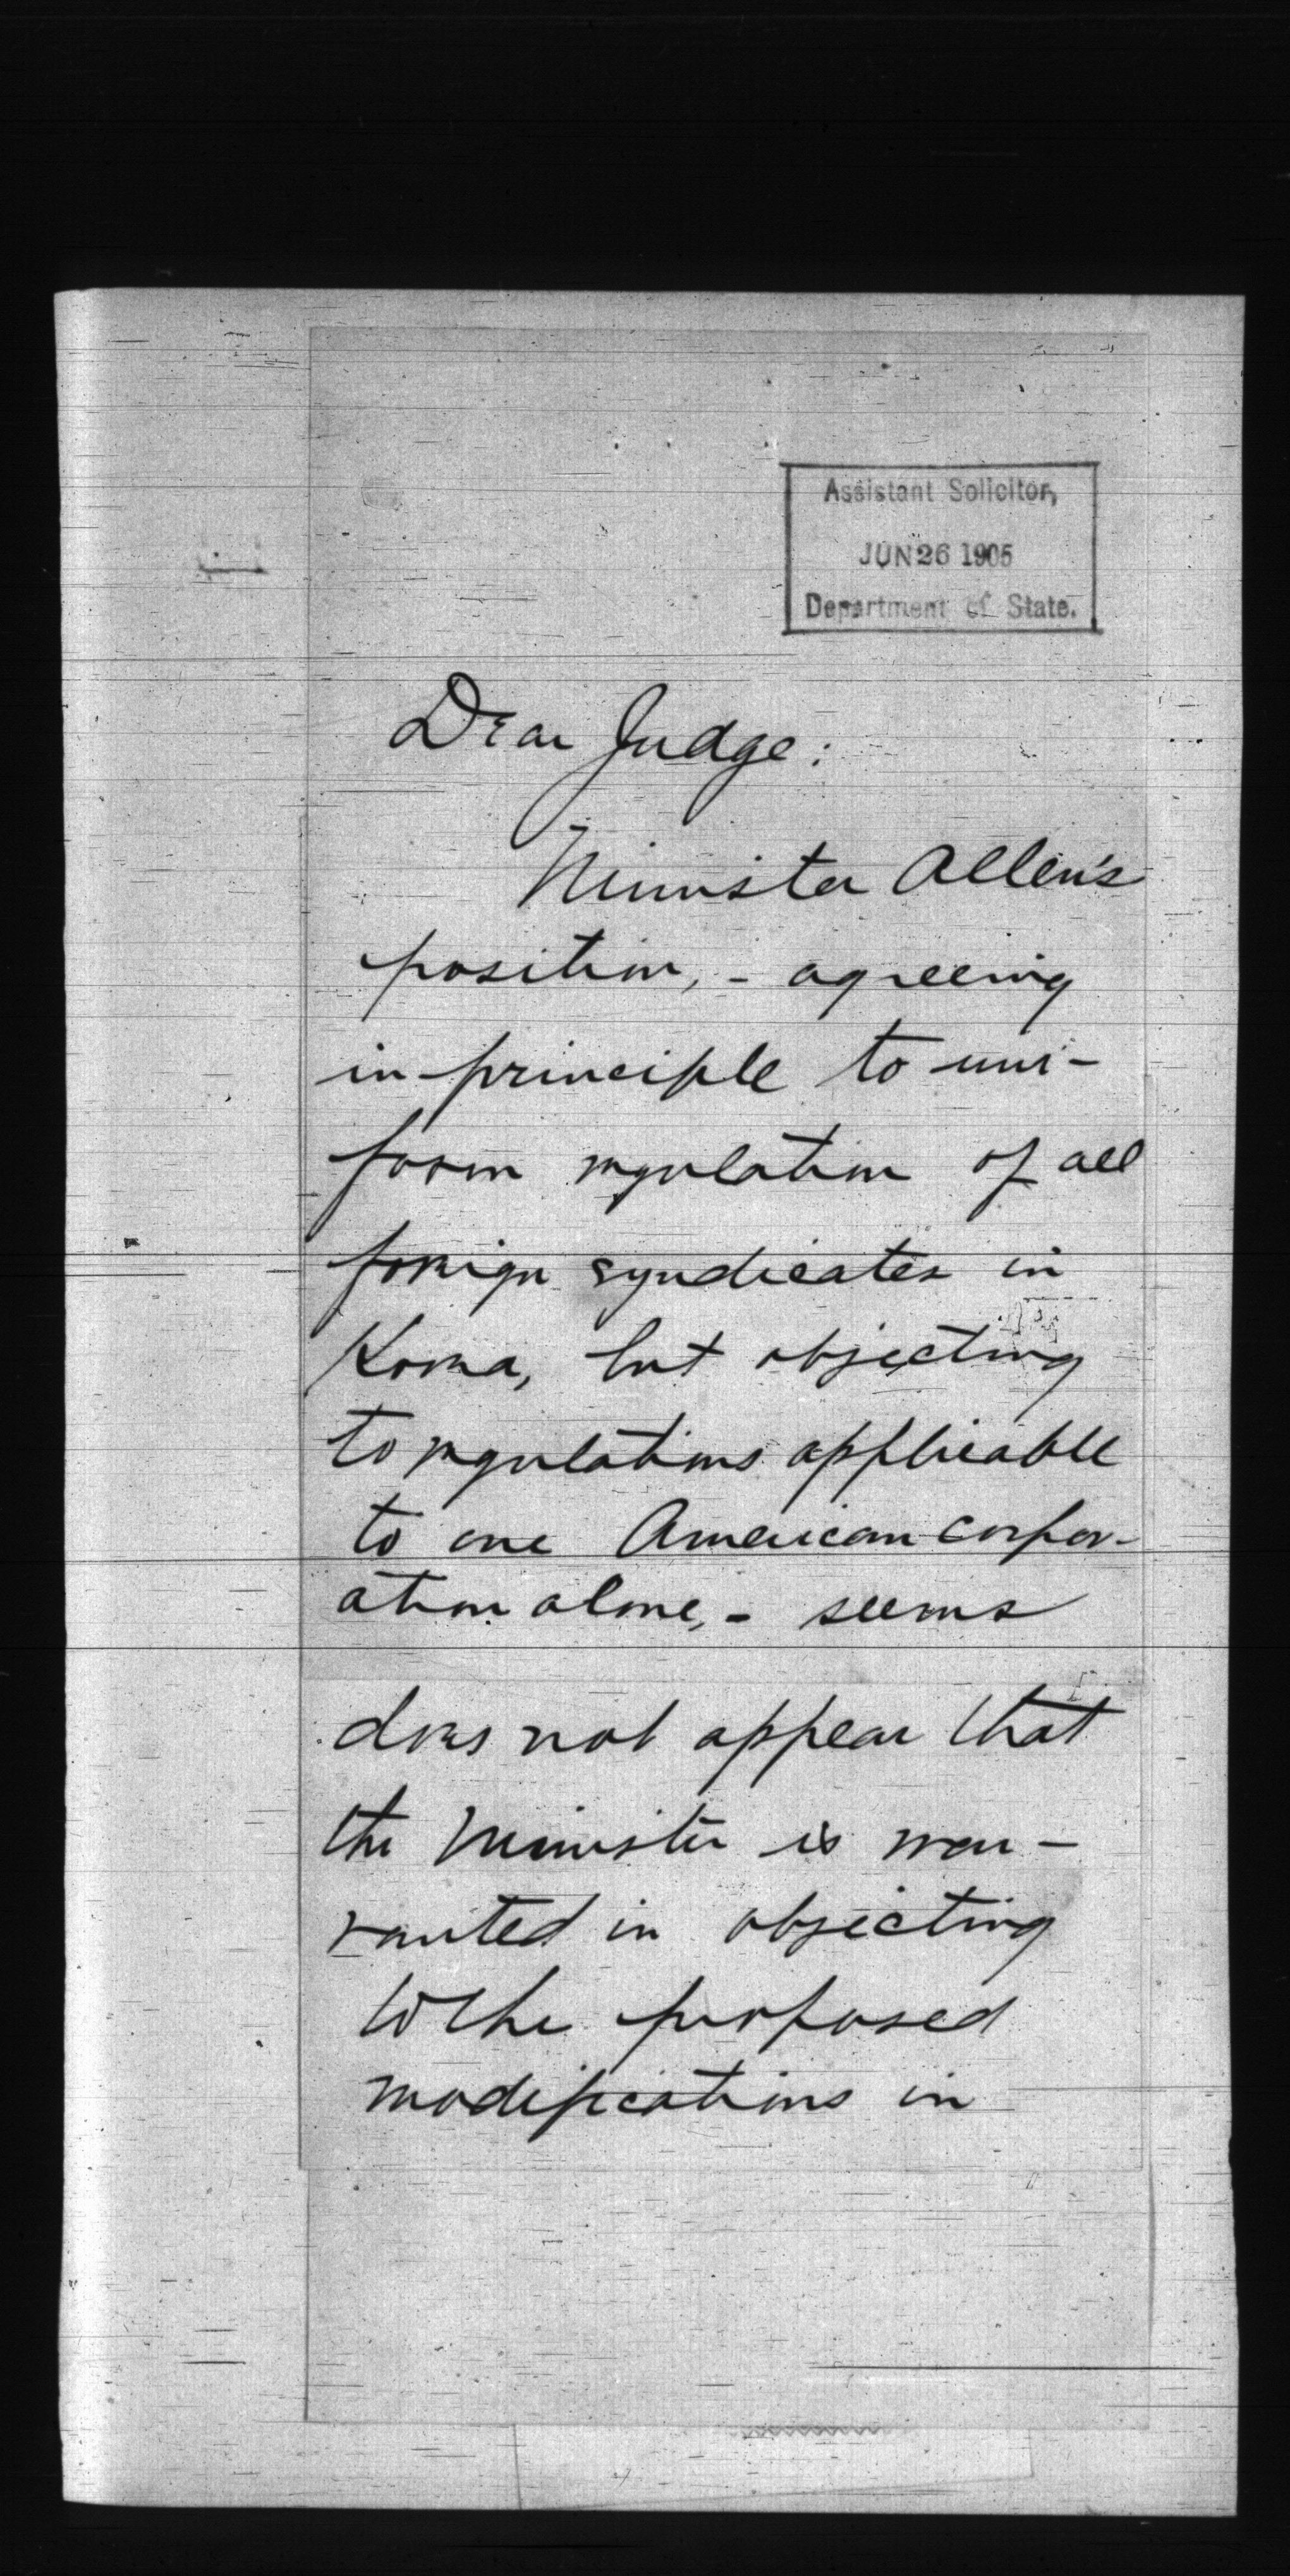 Assistant Solicitor,
JUN 26 1905
Department of State.
Dear Judge:
Minister Allen's
position, - agreeing
in principle to uni-
form regulation of all
foreign syndicates in
Korea, but objecting
to regulations applicable
to one American corpor-
ation alone, - seems
does not appear that
the Minister is war-
ranted in objecting
to the proposed
modifications in